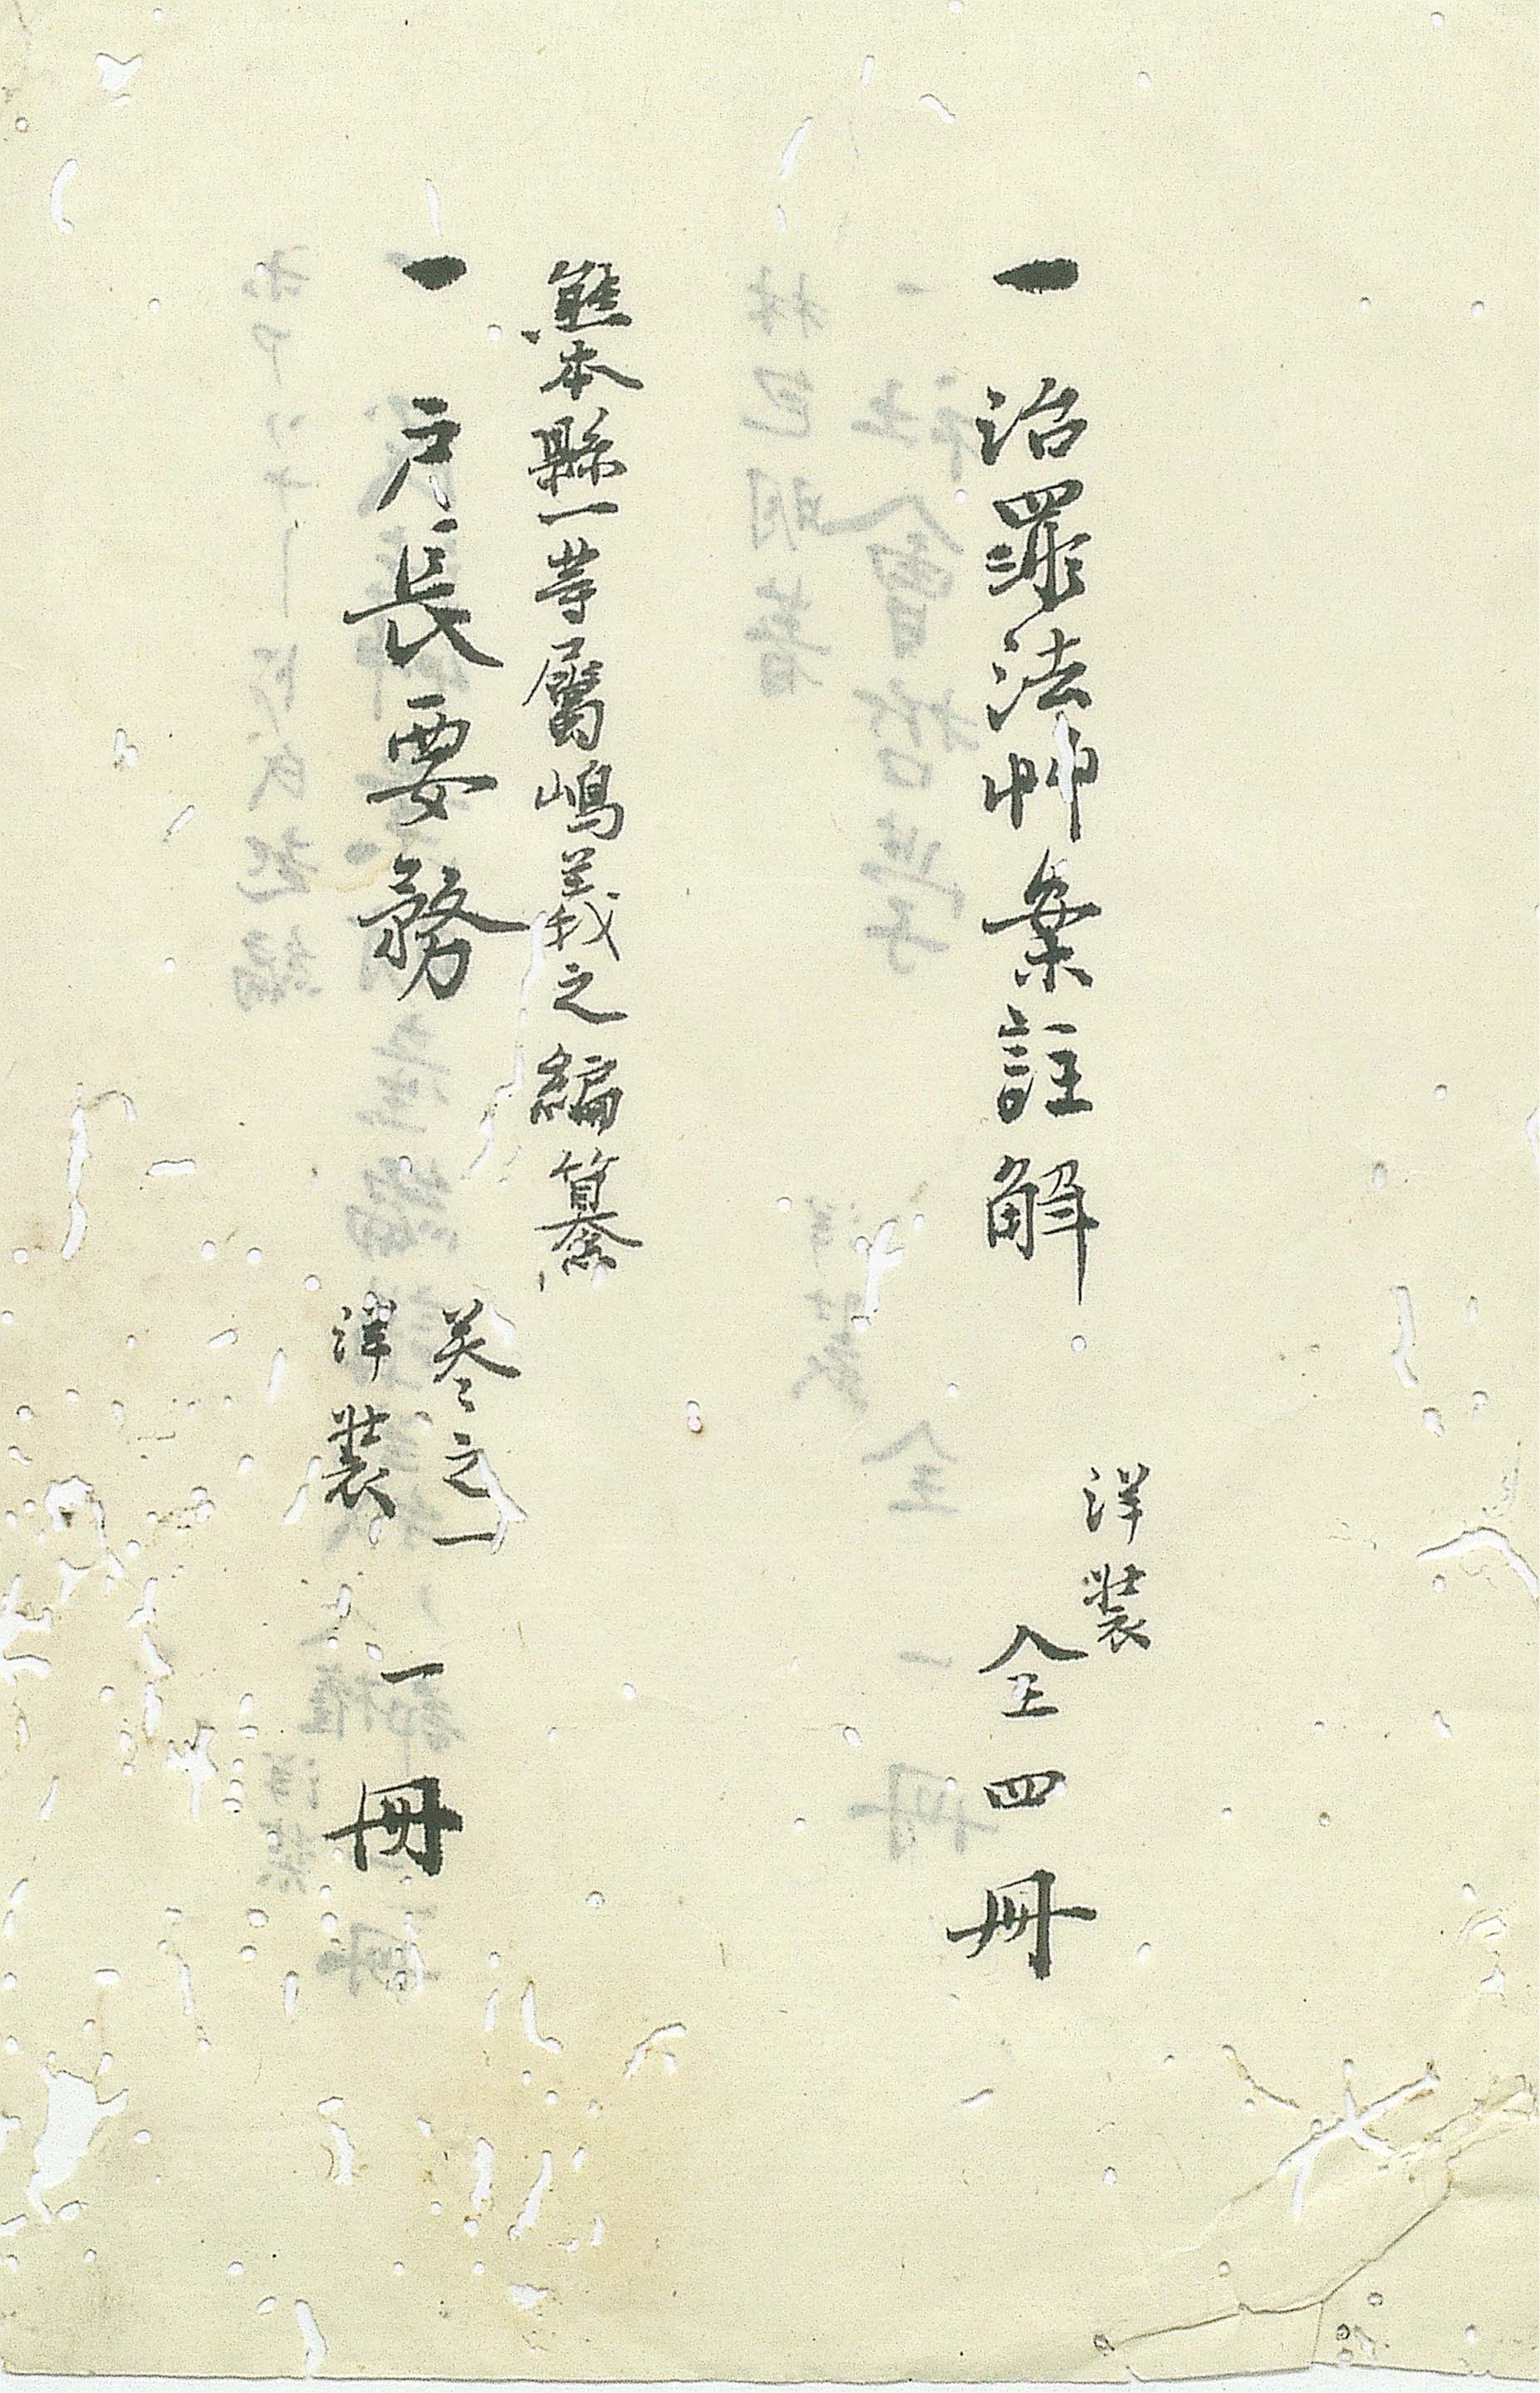 一 治罪法艸案註解 洋装 全四冊
熊本縣一等屬嶋義之編纂
一 戸長要務 巻之一 洋装 一冊